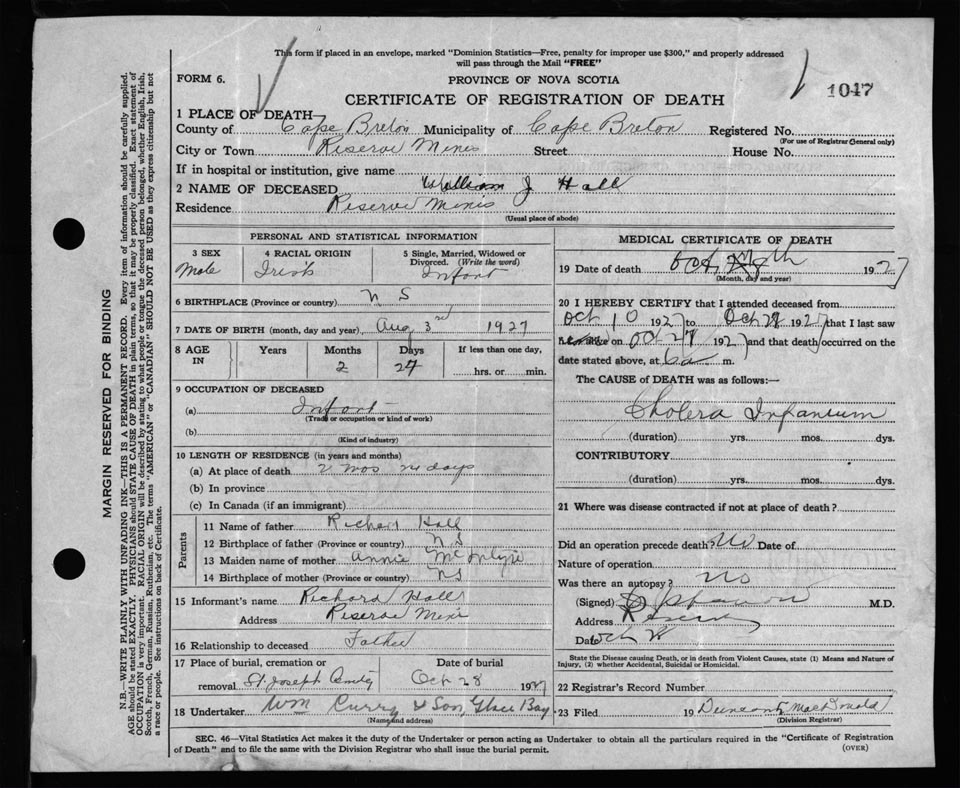 This form if placed in an envelope, marked "Dominion Statistics—Free, penalty for improper use $300," and properly addressed
will pass through the Mail "FREE"
FORM 6.
PROVINCE OF NOVA SCOTIA
1047
CERTIFICATE OF REGISTRATION OF DEATH
1 PLACE OF DEATH—
County of Cape Breton Municipality of Cape Breton Registered No.
(For use of Registrar General only)
City or Town Reserve Mines Street House No.
If in hospital or institution, give name
2 NAME OF DECEASED William J Hall
Residence Reserve Mines
(Usual place of abode)
PERSONAL AND STATISTICAL INFORMATION
3 SEX 4 RACIAL ORIGIN 5 Single, Married, Widowed or
Divorced. (Write the word)
Male Irish Infant
6 BIRTHPLACE (Province or country) N S
7 DATE OF BIRTH (month, day and year) Aug 3rd 1927
8 AGE IN Years Months Days If less than one day,
2 24 hrs. or min.
9 OCCUPATION OF DECEASED
(a) Infant
(Trade or occupation or kind of work)
(b)
(Kind of industry)
10 LENGTH OF RESIDENCE (in years and months)
(a) At place of death 2 mos 24 days
(b) In province
(c) In Canada (if an immigrant)
Parents
11 Name of father Richard Hall
12 Birthplace of father (Province or country) N S
13 Maiden name of mother Annie McIntyre
14 Birthplace of mother (Province or country) NS
15 Informant's name Richard Hall
Address Reserve Mines
16 Relationship to deceased Father
17 Place of burial, cremation or Date of burial
removal St. Joseph Cemetery Oct 28 1927
18 Undertaker Wm Curry & Son, Glace Bay
(Name and address)
MEDICAL CERTIFICATE OF DEATH
19 Date of death Oct 1927
(Month, day and year)
20 I HEREBY CERTIFY that I attended deceased from
Oct 10 1927 to Oct 1927 that I last saw
alive on Oct 27 1927 and that death occurred on the
date stated above, at 6 a m.
The CAUSE of DEATH was as follows:—
Cholera Infantum
(duration) yrs. mos. dys.
CONTRIBUTORY
(duration) yrs. mos. dys.
21 Where was disease contracted if not at place of death?
Did an operation precede death? No Date of
Nature of operation
Was there an autopsy? No
(Signed) M.D.
Address
Date Oct
State the Disease causing Death, or in death from Violent Causes, state (1) Means and Nature of
Injury, (2) whether Accidental, Suicidal or Homicidal.
22 Registrar's Record Number
23 Filed 19 Duncan MacDonald
(Division Registrar)
SEC. 46—Vital Statistics Act makes it the duty of the Undertaker or person acting as Undertaker to obtain all the particulars required in the "Certificate of Registration
of Death" and to file the same with the Division Registrar who shall issue the burial permit.
(OVER)
MARGIN RESERVED FOR BINDING
N.B.—WRITE PLAINLY WITH UNFADING INK—THIS IS A PERMANENT RECORD. Every item of information should be carefully supplied.
AGE should be stated EXACTLY. PHYSICIANS should STATE CAUSE OF DEATH in plain terms, so that it may be properly classified. Exact statement of
OCCUPATION is very important. RACIAL ORIGIN will be described by stating to what people or tongue the deceased person belonged, whether English, Irish,
Scotch, French, German, Russian, Ruthenian, etc. The terms "AMERICAN" or "CANADIAN" SHOULD NOT BE USED as they express citizenship but not
a race or people. See instructions on back of Certificate.